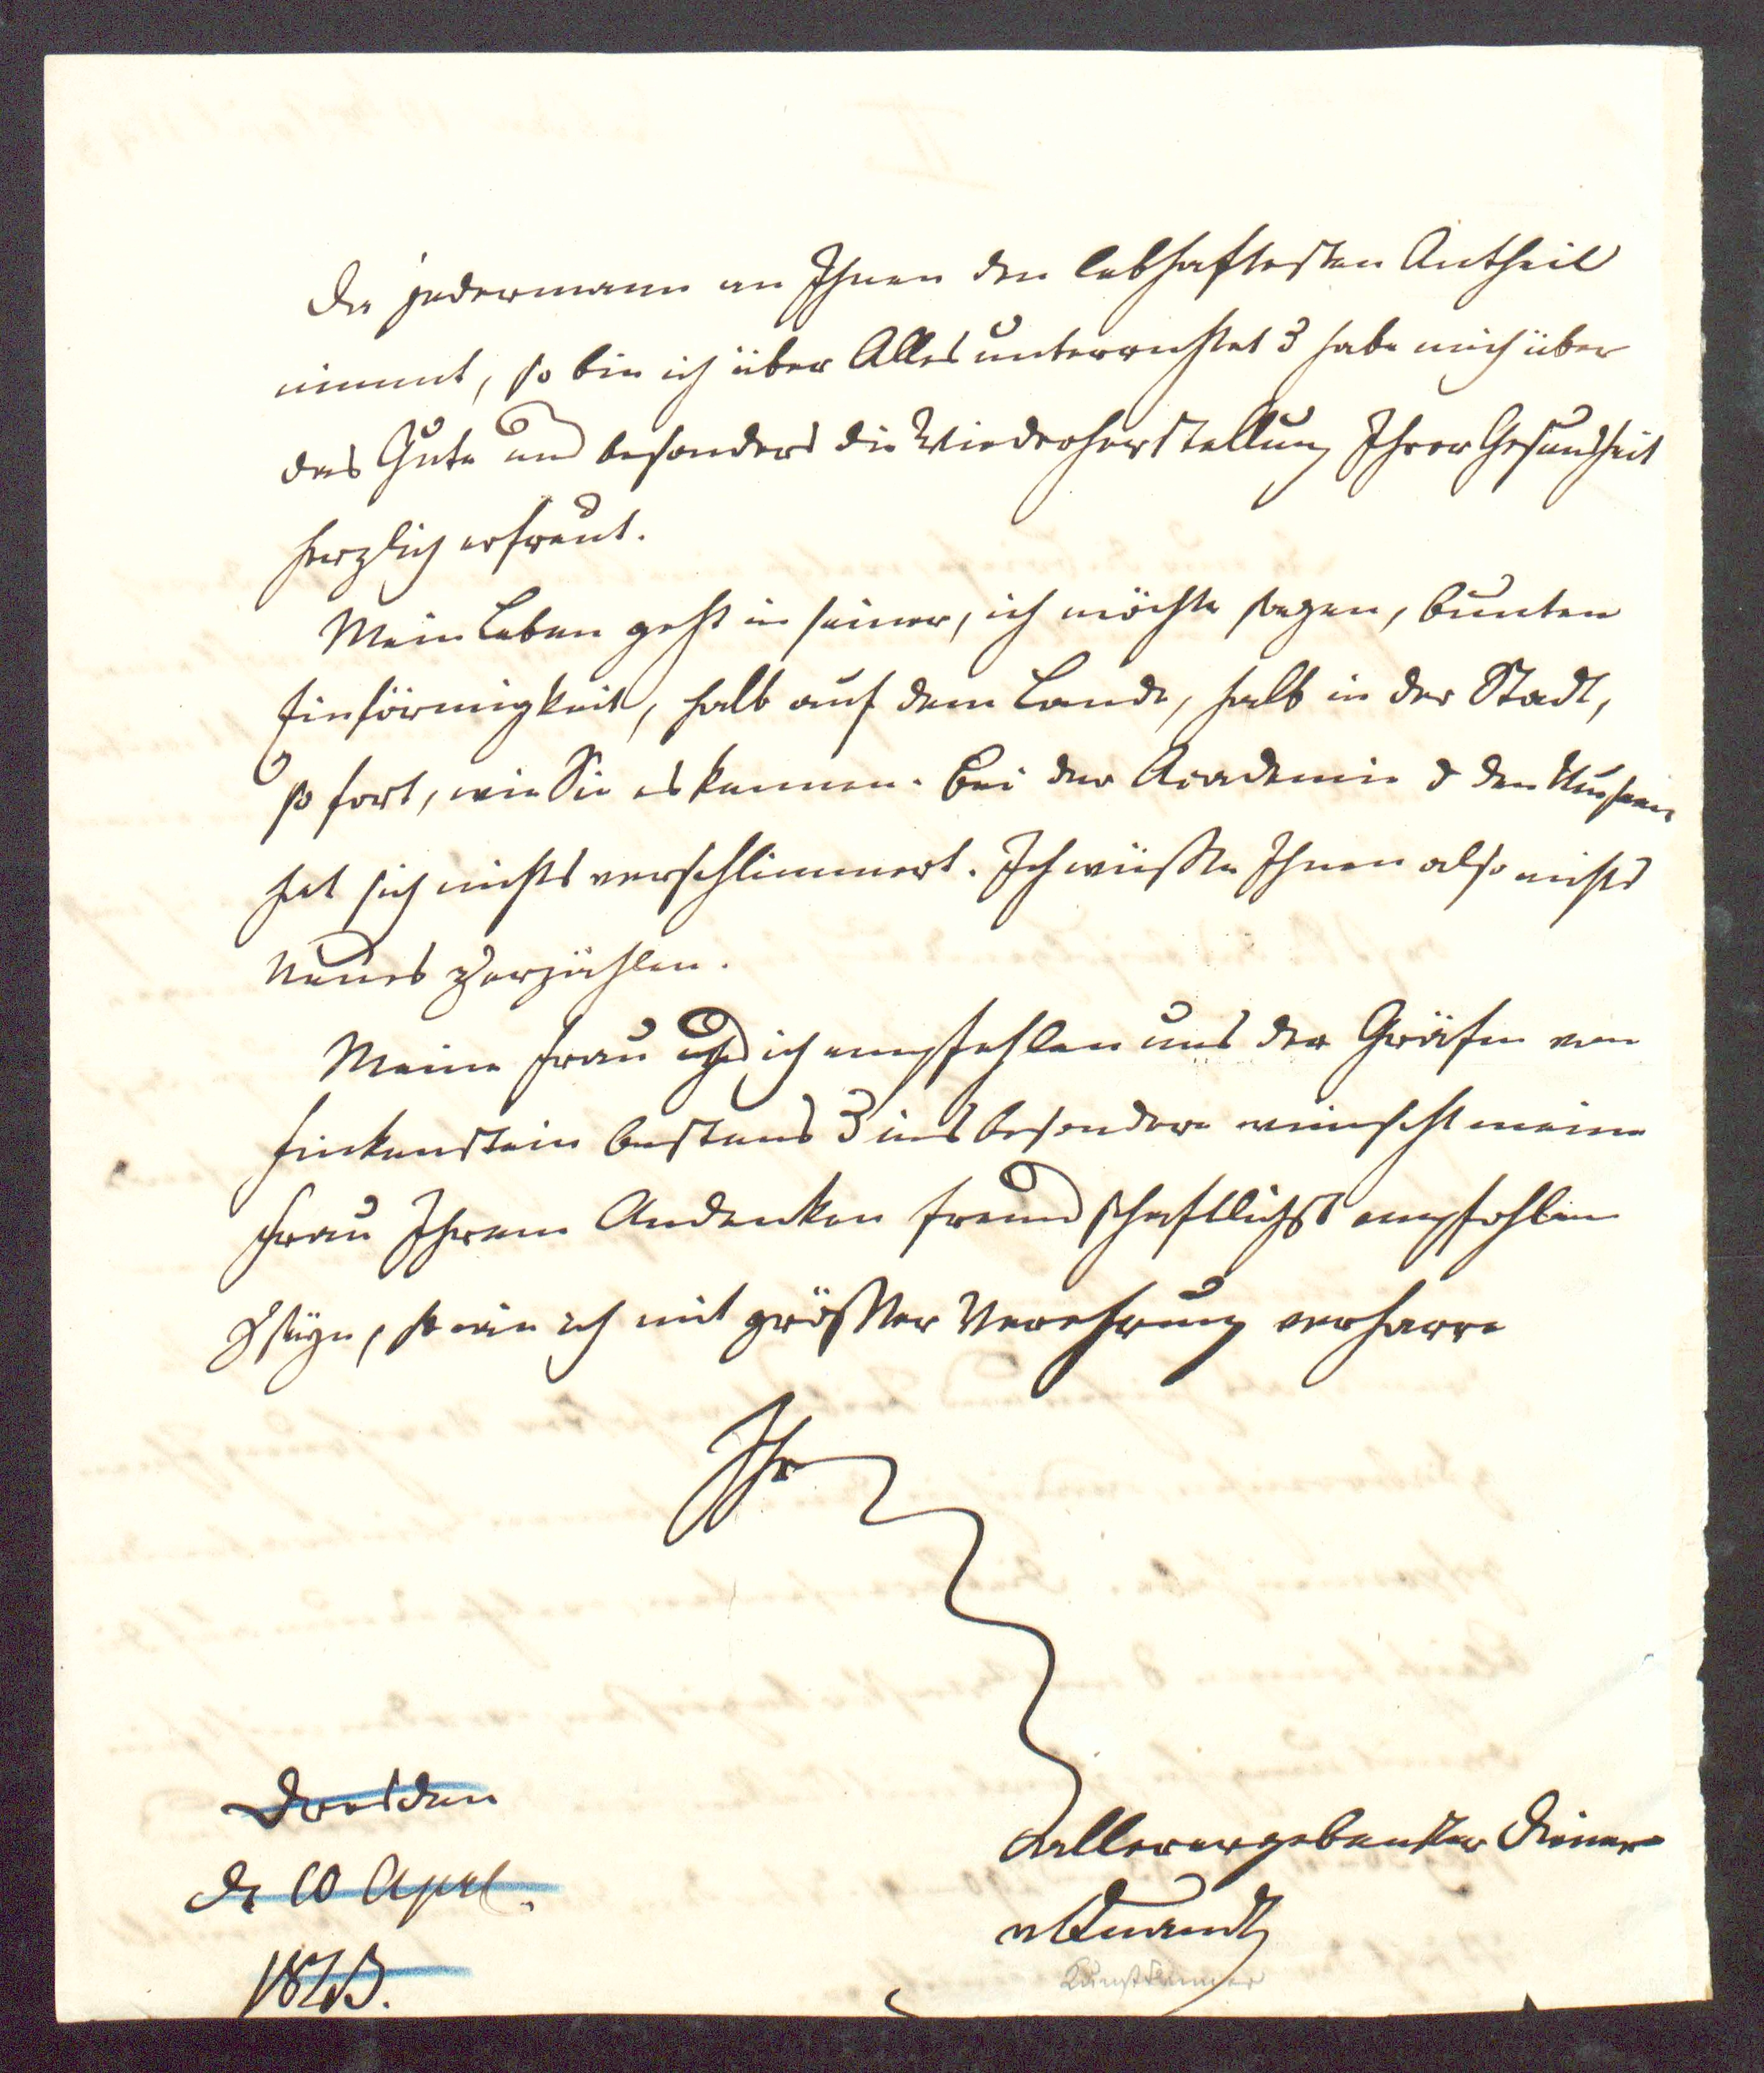 Da jedermann an Ihnen den lebhaftesten Antheil
nimmt, so bin ich über Alles unterrichtet & habe mich über
das Gute und besonders die Wiederherstellung Ihrer Gesundheit
herzlich erfreut.
Mein Leben geht in seiner, ich möchte sagen, bunten
Einförmigkeit, halb auf dem Lande, halb in der Stadt,
so fort, wie Sie es kennen. Bei der Academie & den Museen
hat sich nichts verschlimmert. Ich wüßte Ihnen also nichts
Neues zu erzählen.
Meine Frau und ich empfehlen uns der Gräfin von
Finkenstein bestens & insbesondere wünscht meine
Frau Ihrem Andenken freundschaftlichst empfohlen
zu seyn, so wie ich mit größter Verehrung verharre
Ihr
allerergebenster Diener
v Quandt
Kunstkenner
Dresden
d. 10 April.
1843.